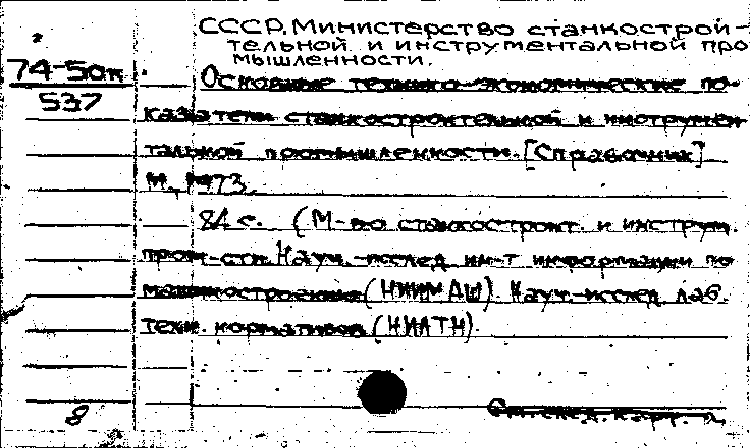 СССР. Министерство станкострои-
тельной и инструментальной про
мышленности.
74-50к
537
Основные технико-экономические по-
казатели станкостроительной и инструмен
тальной промышленности. [Справочник]
М., 1973.
84 с. (М-во станкостроит. и инструм.
пром-сти. Науч.-исслед. ин-т информации по
машиностроению (НИИМАШ). Науч.-исслед. лаб.
техн. нормативов (НИЛТН).
8